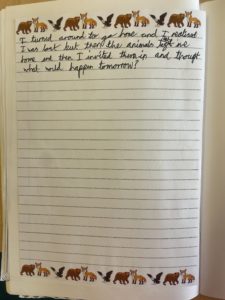 I turned around to go home and I realised
I was lost but then the animals took me
home and then I invited them in and thought
what would happen tomorrow?